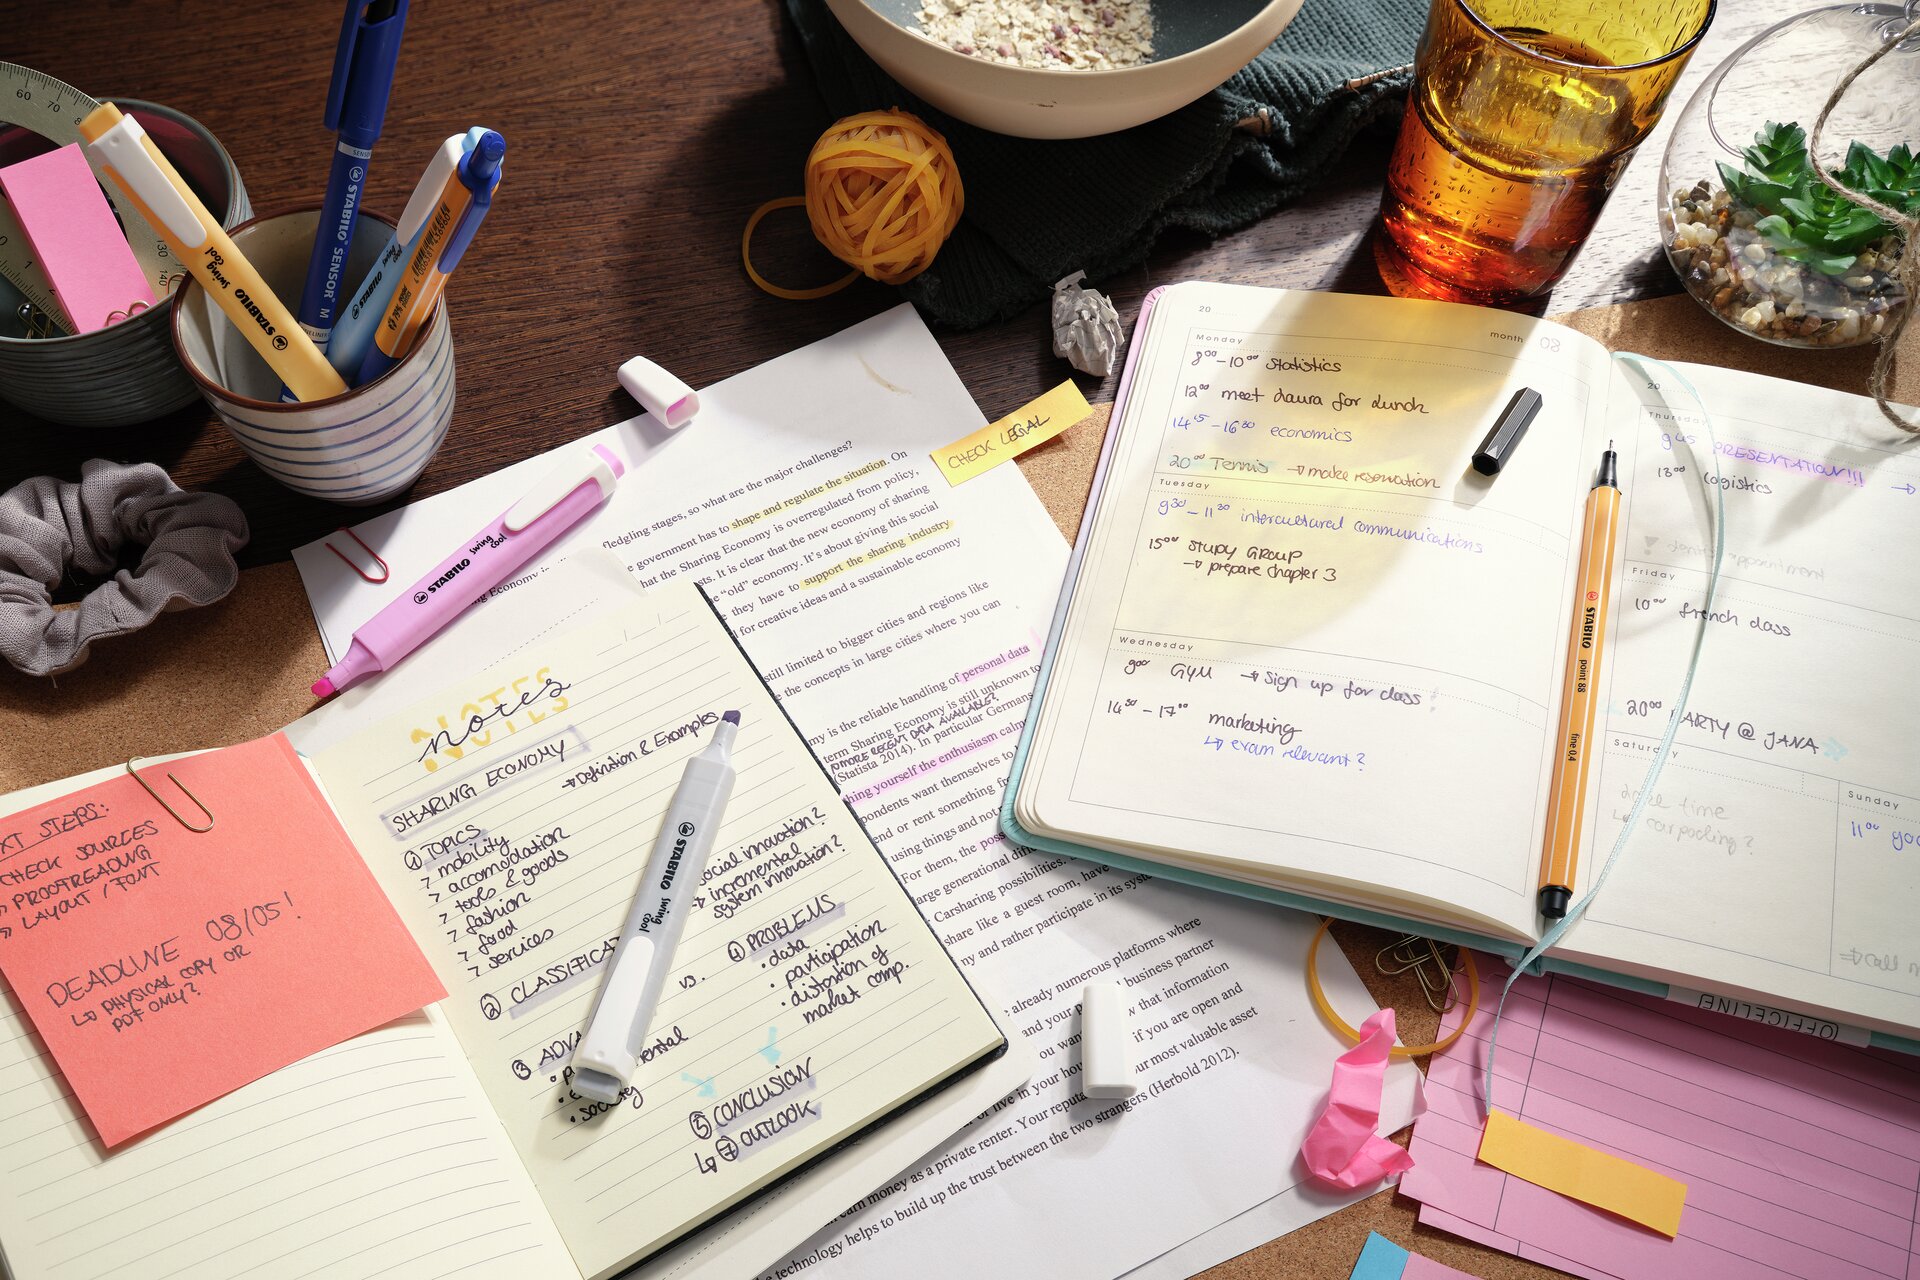 STABILO swing cool
STABILO SENSOR M
STABILO swing cool
fledgling stages, so what are the major challenges?
government has to shape and regulate the situation. On
hat the Sharing Economy is overregulated from policy,
sts. It is clear that the new economy of sharing
e "old" economy. It's about giving this social
they have to support the sharing industry
l for creative ideas and a sustainable economy
still limited to bigger cities and regions like
e the concepts in large cities where you can
my is the reliable handling of personal data
term Sharing Economy is still unknown to
MORE RECENT DATA AVAILABLE?
(Statista 2014). In particular Germans
thing yourself the enthusiasm calm
pondents want themselves to
end or rent something
using things and not
For them, the
large generational
Carsharing possibilities.
share like a guest room, have
ny and rather participate in its
already numerous platforms where
and your business partner
ou wan w that information
or live in your hou if you are open and
earn money as a private renter. Your reputa our most valuable asset
technology helps to build up the trust between the two strangers (Herbold 2012).
CHECK LEGAL
STABILO swing cool
notes
NOTES
SHARING ECONOMY
→ Definition & Examples
① TOPICS
> mobility
> accomodation
> tools & goods
> fashion
> food
> services
② CLASSIFICAT
social innovation?
→ incremental
system innovation?
vs.
③ ADVA
ental
• society
④ PROBLEMS
• data
• participation
• distortion of
market comp.
⑤ CONCLUSION
↳ ⑦ OUTLOOK
STABILO swing cool
XT STEPS:
CHECK SOURCES
PROOFREADING
LAYOUT / FONT
DEADLINE 08/05!
↳ PHYSICAL COPY OR
PDF ONLY?
20
month 08
Monday
8⁰⁰-10⁰⁰ Statistics
12⁰⁰ meet Laura for Lunch
14¹⁵-16³⁰ economics
20⁰⁰ Tennis → make reservation
Tuesday
9³⁰-11³⁰ intercultural communications
15⁰⁰ STUDY GROUP
→ prepare chapter 3
Wednesday
9⁰⁰ GYM → sign up for class!
14³⁰-17⁰⁰ marketing
↳ exam relevant?
STABILO point 88 fine 0.4
20
Thursday
9⁴⁵ PRESENTATION!!! →
13⁰⁰ Logistics
Friday
10⁰⁰ french class
20⁰⁰ PARTY @ JANA
Saturday
time
↳ carpooling?
Sunday
11⁰⁰
OFFICELINE